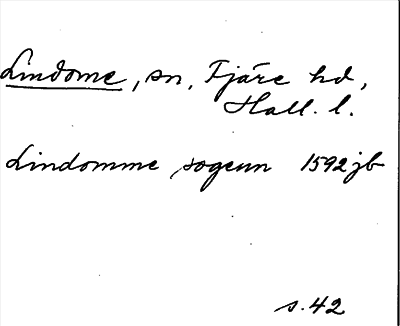 Lindome, sn, Fjäre hd,
Hall. l.
Lindomme sogenn 1592 jb
s. 42